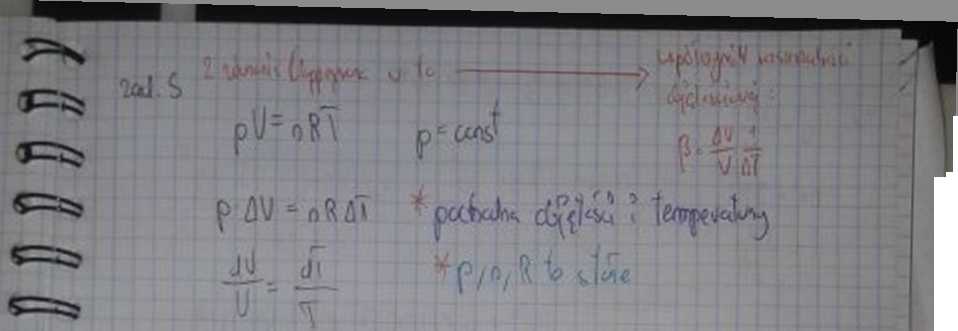 zad. 5 z równania Clapeyrona → współczynnik rozszerzalności
objętościowej:
pV = nRT p = const β = ΔV/V 1/ΔT
p ΔV = nRΔT * pochodna objętości i temperatury
dV/V = dT/T * p, n, R to stałe